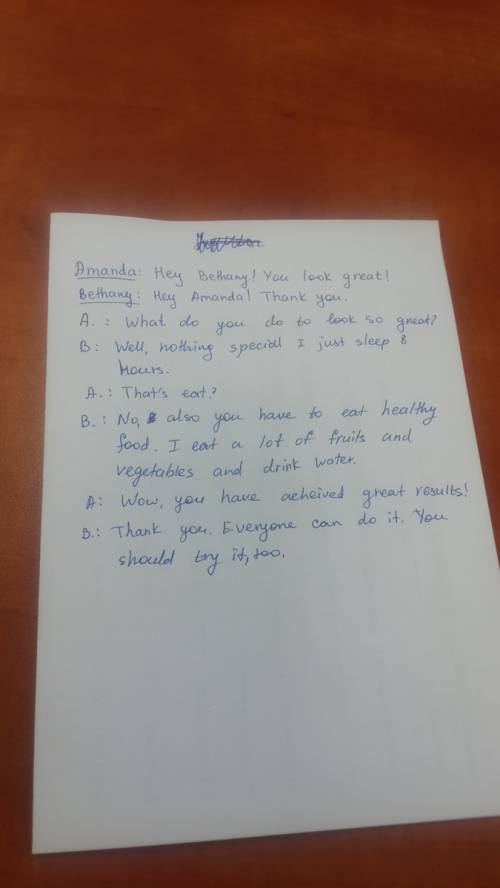 Amanda: Hey Bethany! You look great!
Bethany: Hey Amanda! Thank you.
A.: What do you do to look so great?
B: Well, nothing special I just sleep 8
hours.
A.: That's eat?
B.: No, also you have to eat healthy
food. I eat a lot of fruits and
vegetables and drink water.
A: Wow, you have acheived great results!
B.: Thank you. Everyone can do it. You
should try it, too.